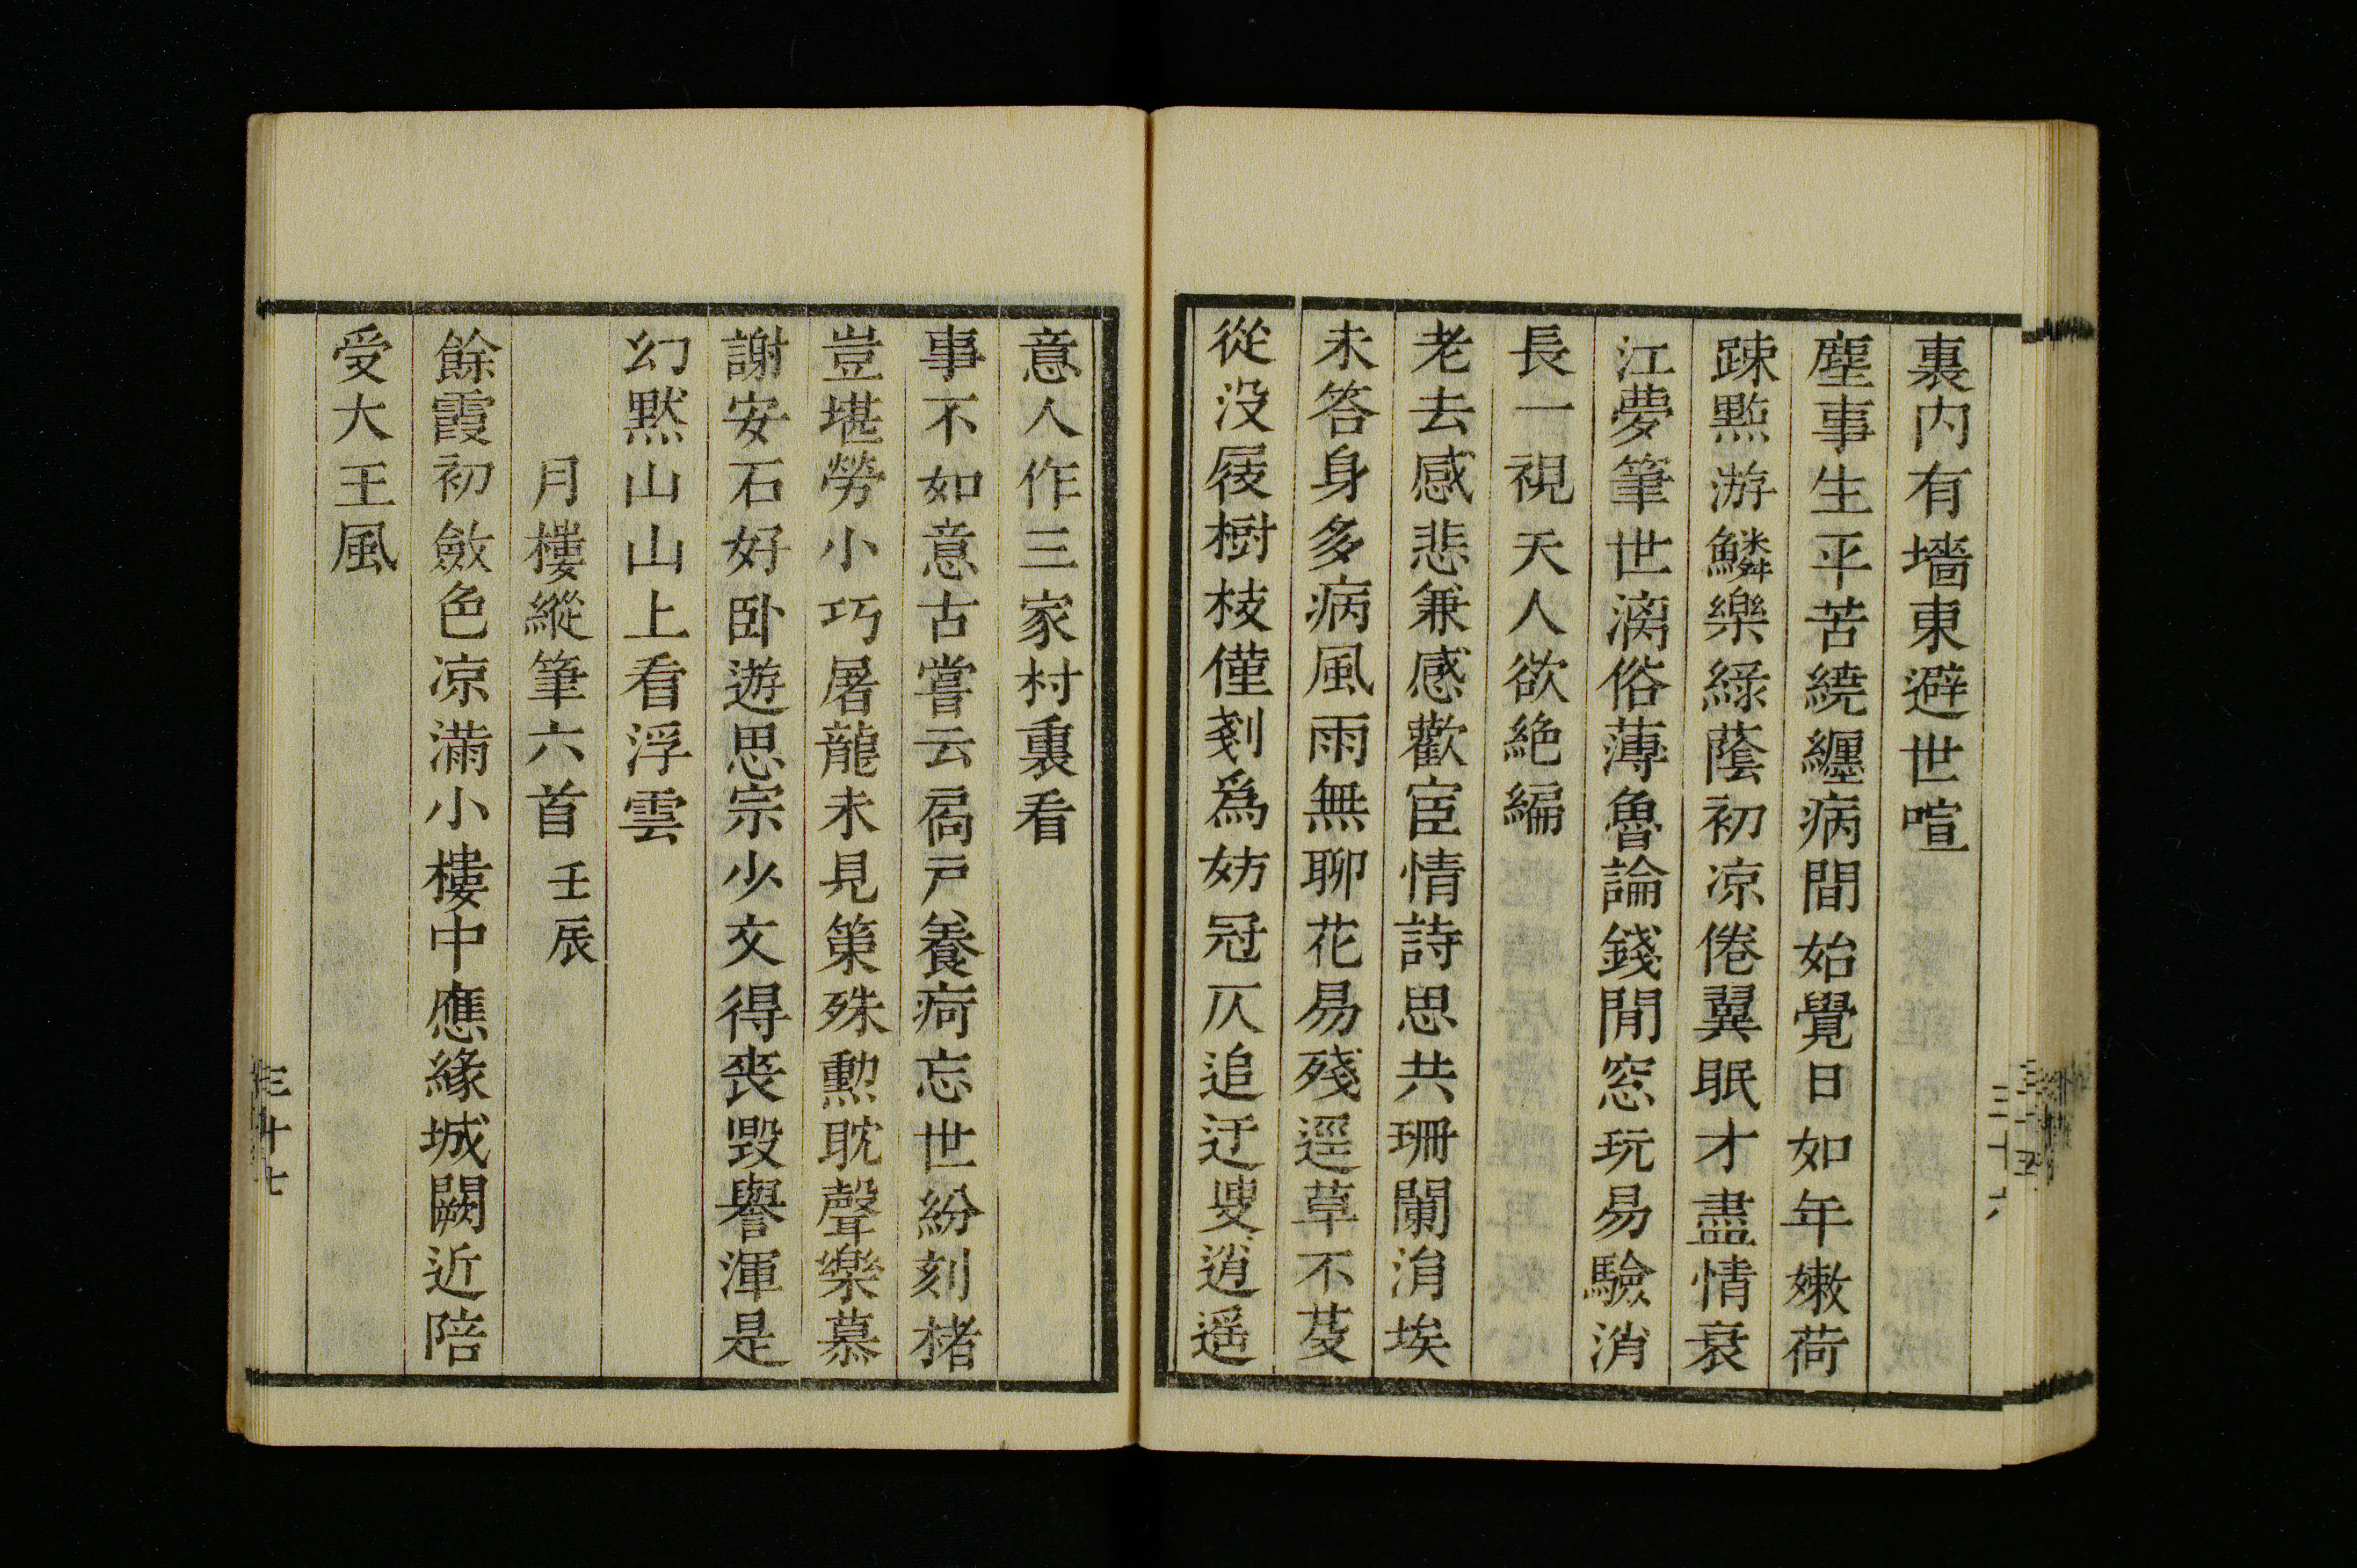 裏内有墻東避世喧
塵事生平苦繞纏病間始覺日如年嫩荷
踈點游鱗樂綠蔭初凉倦翼眠才盡情衰
江夢筆世漓俗薄魯論錢閒窓玩易驗消
長一視天人欲絶編
老去感悲兼感歡宦情詩思共珊闌涓埃
未答身多病風雨無聊花易殘逕草不芟
從没屐樹枝僅剗爲妨冠仄追迂叟逍遥
三十六
意人作三家村裏看
事不如意古嘗云扃戸養疴忘世紛刻楮
豈堪勞小巧屠龍未見策殊勲耽聲樂慕
謝安石好卧遊思宗少文得喪毀譽渾是
幻黙山山上看浮雲
月樓縱筆六首 壬辰
餘霞初斂色凉滿小樓中應緣城闕近陪
受大王風
三十七